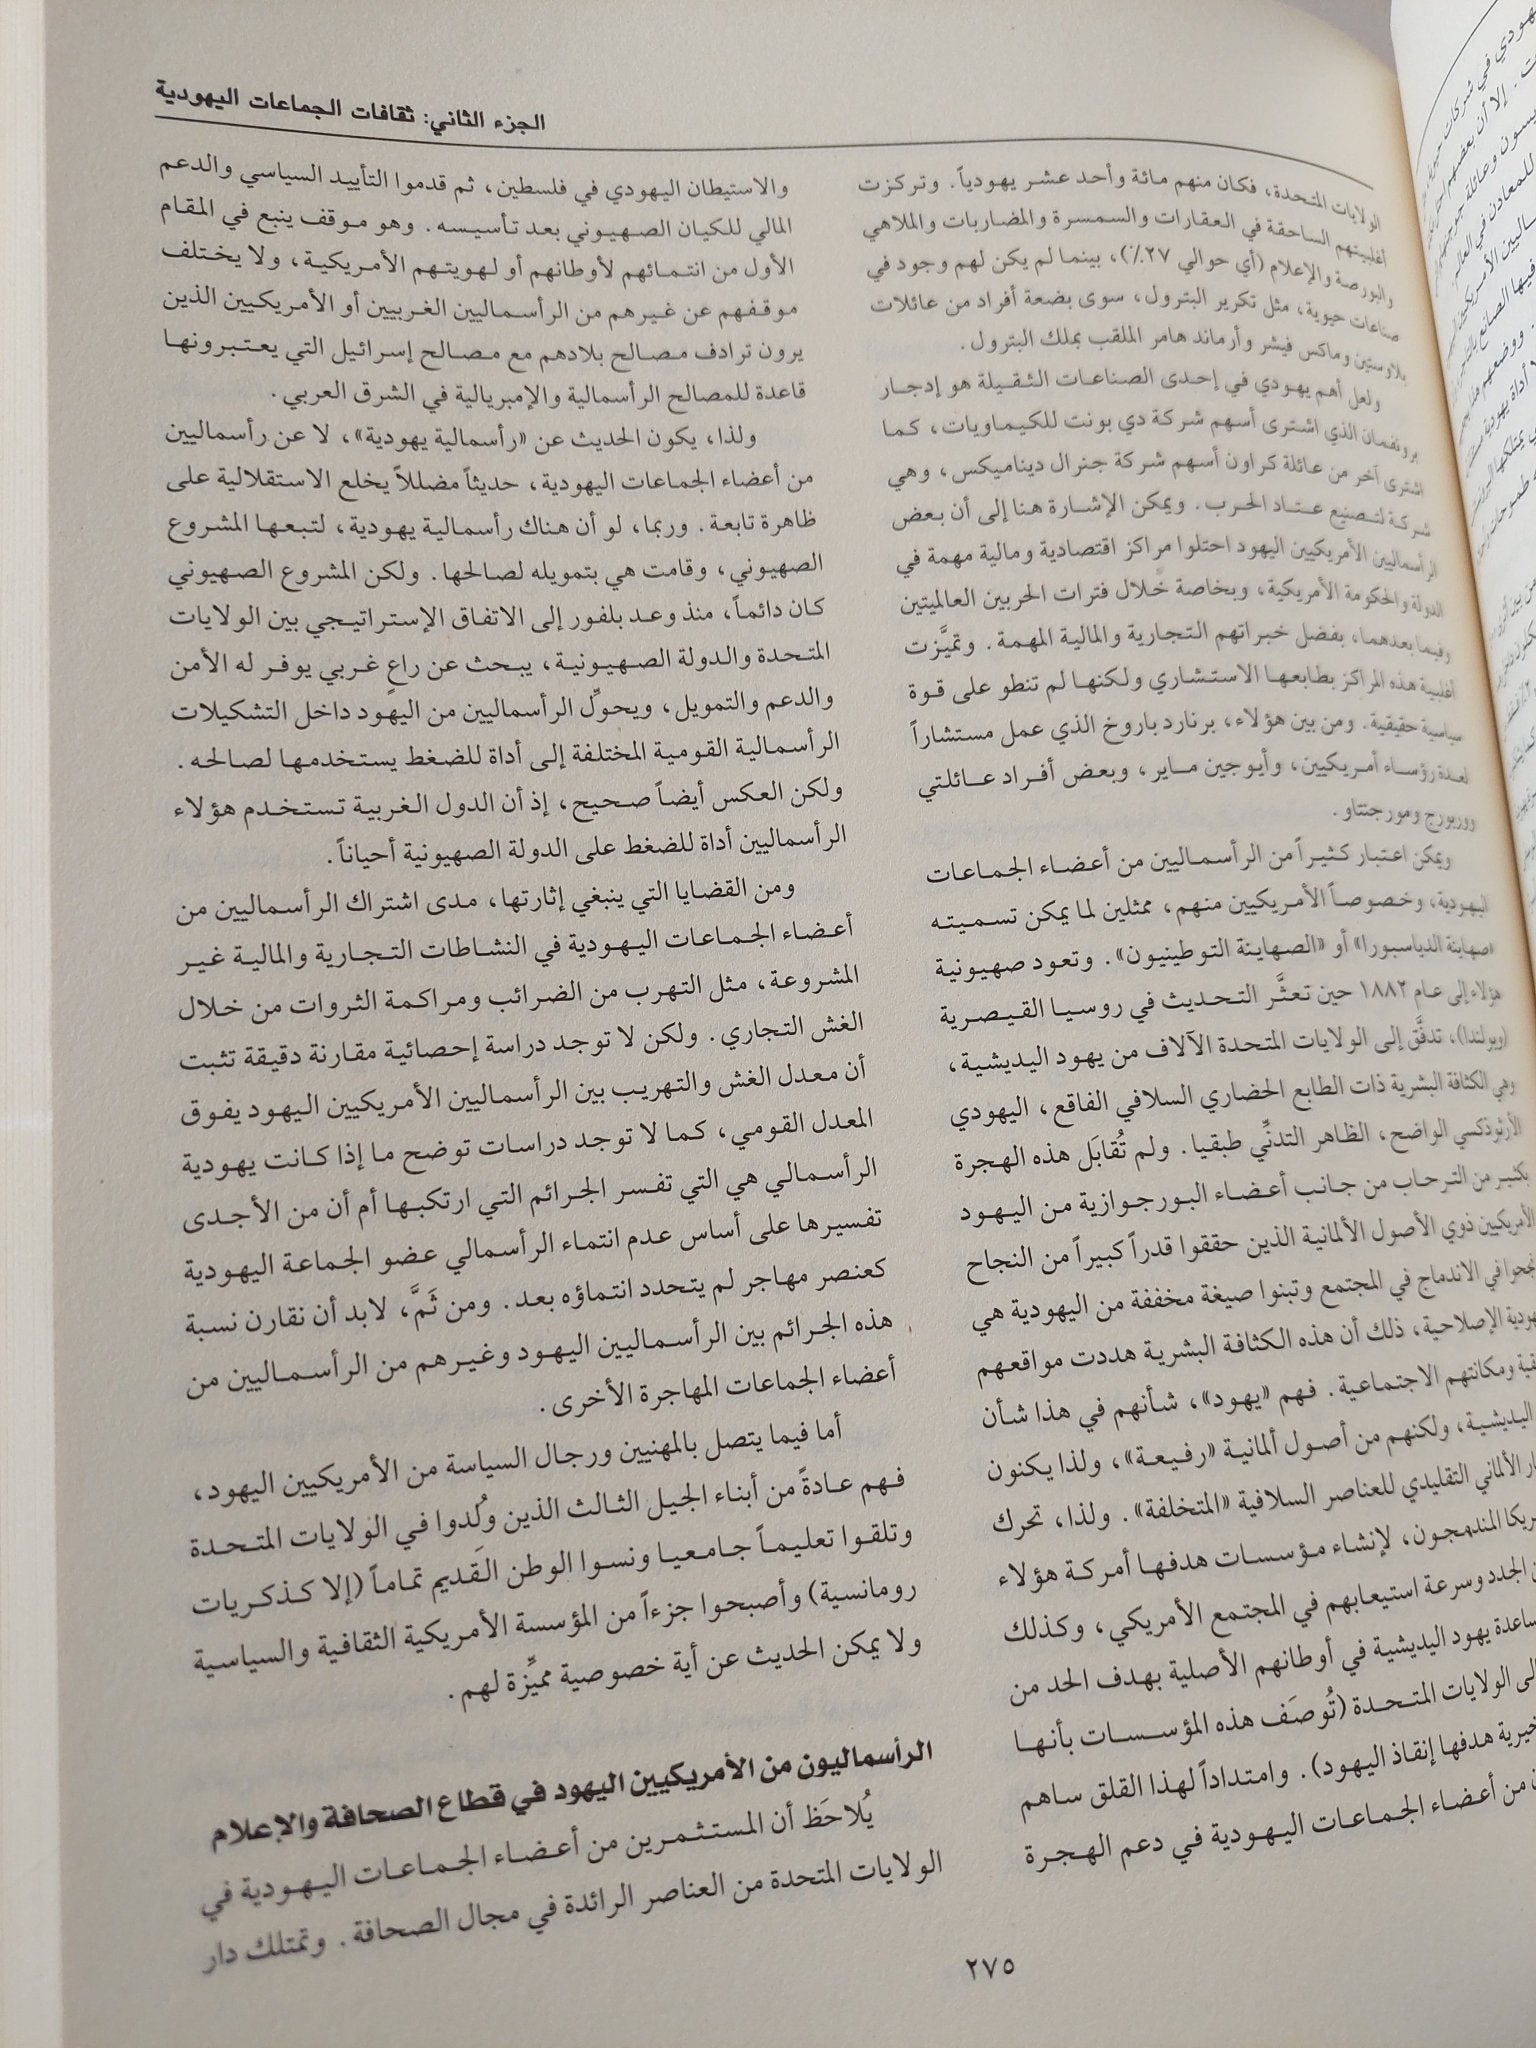 الجزء الثاني: ثقافات الجماعات اليهودية
الولايات المتحدة، فكان منهم مائة وأحد عشر يهودياً. وتركزت
أغلبيتهم الساحقة في العقارات والسمسرة والمضاربات والملاهي
والبورصة والإعلام (أي حوالي ٢٧٪)، بينما لم يكن لهم وجود في
صناعات حيوية، مثل تكرير البترول، سوى بضعة أفراد من عائلات
بلاوستين وماكس فيشر وأرماند هامر الملقب بملك البترول.
ولعل أهم يهودي في إحدى الصناعات الثقيلة هو إدجار
برونفمان الذي اشترى أسهم شركة دي بونت للكيماويات، كما
اشترى آخر من عائلة كراون أسهم شركة جنرال ديناميكس، وهي
شركة لتصنيع عتاد الحرب. ويمكن الإشارة هنا إلى أن بعض
الرأسماليين الأمريكيين اليهود احتلوا مراكز اقتصادية ومالية مهمة في
الدولة والحكومة الأمريكية، وبخاصة خلال فترات الحربين العالميتين
وفيما بعدهما، بفضل خبراتهم التجارية والمالية المهمة. وتميَّزت
أغلبية هذه المراكز بطابعها الاستشاري ولكنها لم تنطو على قوة
سياسية حقيقية. ومن بين هؤلاء، برنارد باروخ الذي عمل مستشاراً
لعدة رؤساء أمريكيين، وأيوجين ماير، وبعض أفراد عائلتي
ووربورج ومورجنتاو.
ويمكن اعتبار كثيراً من الرأسماليين من أعضاء الجماعات
اليهودية، وخصوصاً الأمريكيين منهم، ممثلين لما يمكن تسميته
«صهاينة الدياسبورا» أو «الصهاينة التوطينيون». وتعود صهيونية
هؤلاء إلى عام ١٨٨٢ حين تعثَّر التحديث في روسيا القيصرية
(وبولندا)، تدفَّق إلى الولايات المتحدة الآلاف من يهود اليديشية،
وهي الكثافة البشرية ذات الطابع الحضاري السلافي الفاقع، اليهودي
الأرثوذكسي الواضح، الظاهر التدنِّي طبقيا. ولم تُقابَل هذه الهجرة
بكثير من الترحاب من جانب أعضاء البورجوازية من اليهود
الأمريكيين ذوي الأصول الألمانية الذين حققوا قدراً كبيراً من النجاح
في الاندماج في المجتمع وتبنوا صيغة مخففة من اليهودية هي
الإصلاحية، ذلك أن هذه الكثافة البشرية هددت مواقعهم
ومكانتهم الاجتماعية. فهم «يهود»، شأنهم في هذا شأن
اليديشية، ولكنهم من أصول ألمانية «رفيعة»، ولذا يكنون
الألماني التقليدي للعناصر السلافية «المتخلفة». ولذا، تحرك
المندمجون، لإنشاء مؤسسات هدفها أمركة هؤلاء
الجدد وسرعة استيعابهم في المجتمع الأمريكي، وكذلك
يهود اليديشية في أوطانهم الأصلية بهدف الحد من
الولايات المتحدة (تُوصَف هذه المؤسسات بأنها
خيرية هدفها إنقاذ اليهود). وامتداداً لهذا القلق ساهم
من أعضاء الجماعات اليهودية في دعم الهجرة
والاستيطان اليهودي في فلسطين، ثم قدموا التأييد السياسي والدعم
المالي للكيان الصهيوني بعد تأسيسه. وهو موقف ينبع في المقام
الأول من انتمائهم لأوطانهم أو لهويتهم الأمريكية، ولا يختلف
موقفهم عن غيرهم من الرأسماليين الغربيين أو الأمريكيين الذين
يرون ترادف مصالح بلادهم مع مصالح إسرائيل التي يعتبرونها
قاعدة للمصالح الرأسمالية والإمبريالية في الشرق العربي.
ولذا، يكون الحديث عن «رأسمالية يهودية»، لا عن رأسماليين
من أعضاء الجماعات اليهودية، حديثاً مضللاً يخلع الاستقلالية على
ظاهرة تابعة. وربما، لو أن هناك رأسمالية يهودية، لتبعها المشروع
الصهيوني، وقامت هي بتمويله لصالحها. ولكن المشروع الصهيوني
كان دائماً، منذ وعد بلفور إلى الاتفاق الإستراتيجي بين الولايات
المتحدة والدولة الصهيونية، يبحث عن راعٍ غربي يوفر له الأمن
والدعم والتمويل، ويحوِّل الرأسماليين من اليهود داخل التشكيلات
الرأسمالية القومية المختلفة إلى أداة للضغط يستخدمها لصالحه.
ولكن العكس أيضاً صحيح، إذ أن الدول الغربية تستخدم هؤلاء
الرأسماليين أداة للضغط على الدولة الصهيونية أحياناً.
ومن القضايا التي ينبغي إثارتها، مدى اشتراك الرأسماليين من
أعضاء الجماعات اليهودية في النشاطات التجارية والمالية غير
المشروعة، مثل التهرب من الضرائب ومراكمة الثروات من خلال
الغش التجاري. ولكن لا توجد دراسة إحصائية مقارنة دقيقة تثبت
أن معدل الغش والتهريب بين الرأسماليين الأمريكيين اليهود يفوق
المعدل القومي، كما لا توجد دراسات توضح ما إذا كانت يهودية
الرأسمالي هي التي تفسر الجرائم التي ارتكبها أم أن من الأجدى
تفسيرها على أساس عدم انتماء الرأسمالي عضو الجماعة اليهودية
كعنصر مهاجر لم يتحدد انتماؤه بعد. ومن ثَمَّ، لابد أن نقارن نسبة
هذه الجرائم بين الرأسماليين اليهود وغيرهم من الرأسماليين من
أعضاء الجماعات المهاجرة الأخرى.
أما فيما يتصل بالمهنيين ورجال السياسة من الأمريكيين اليهود،
فهم عادةً من أبناء الجيل الثالث الذين وُلدوا في الولايات المتحدة
وتلقوا تعليماً جامعيا ونسوا الوطن القَديم تماماً (إلا كذكريات
رومانسية) وأصبحوا جزءاً من المؤسسة الأمريكية الثقافية والسياسية
ولا يمكن الحديث عن أية خصوصية مميِّزة لهم.
الرأسماليون من الأمريكيين اليهود في قطاع الصحافة والإعلام
يُلاحَظ أن المستثمرين من أعضاء الجماعات اليهودية في
الولايات المتحدة من العناصر الرائدة في مجال الصحافة. وتمتلك دار
٢٧٥